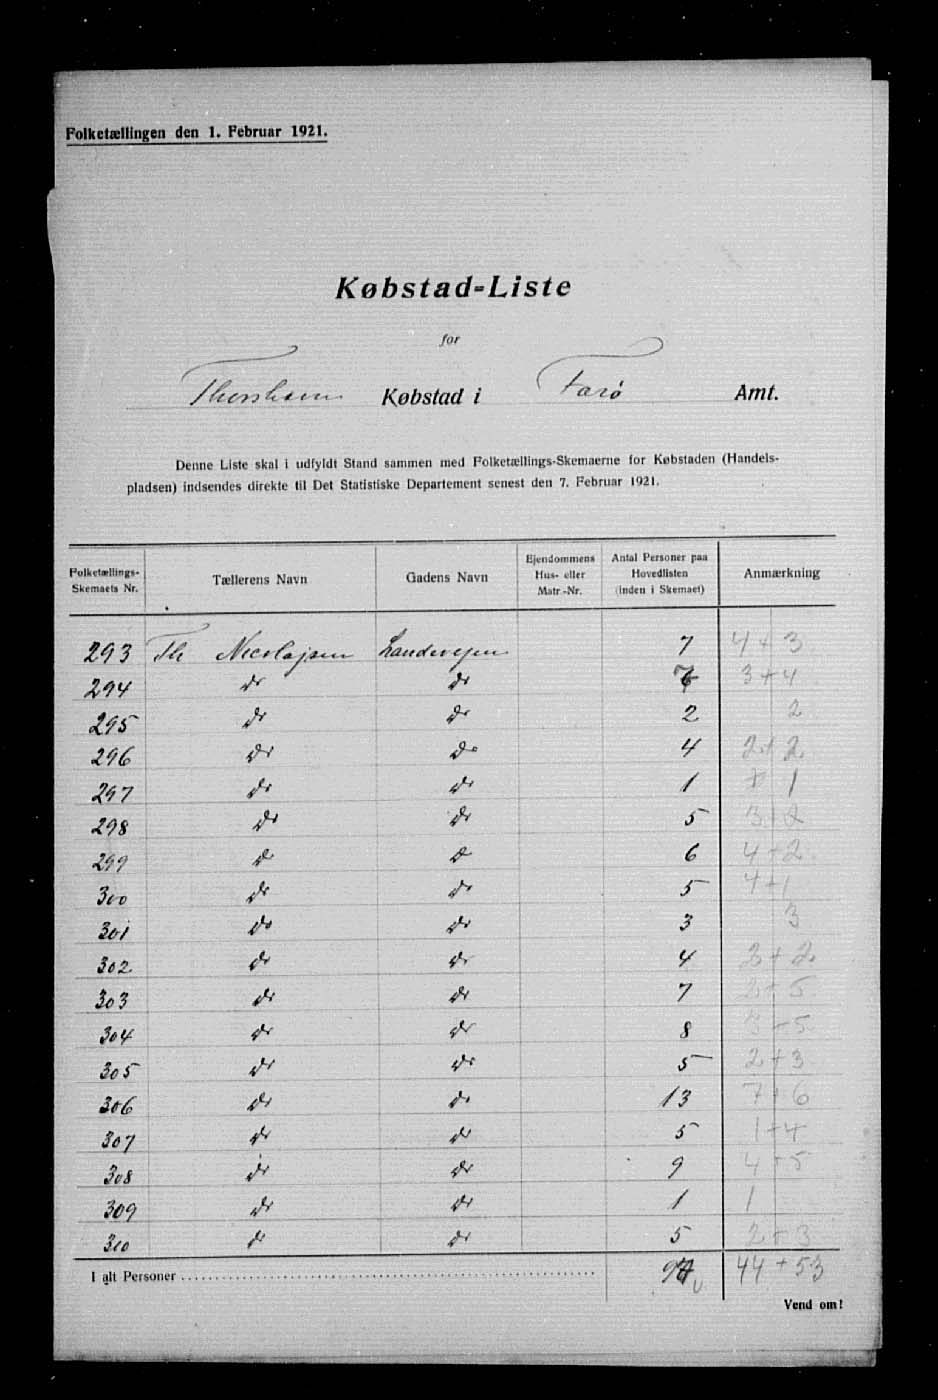 Folketællingen den 1. Februar 1921.
Købstad-Liste
for
Thorshavn Købstad i Farø Amt.
Denne Liste skal i udfyldt Stand sammen med Folketællings-Skemaerne for Købstaden (Handels-
pladsen) indsendes direkte til Det Statistiske Departement senest den 7. Februar 1921.
Folketællings-Skemaets Nr. Tællerens Navn Gadens Navn Ejendommens Hus- eller Matr.-Nr. Antal Personer paa Hovedlisten (inden i Skemaet) Anmærkning
293 Th Nicolajsen Landevejen 7 4 + 3
294 do do 7 3 + 4
295 do do 2 2
296 do do 4 2 + 2
297 do do 1 1
298 do do 5 3 + 2
299 do do 6 4 + 2
300 do do 5 4 + 1
301 do do 3 3
302 do do 4 2 + 2
303 do do 7 2 + 5
304 do do 8 3 + 5
305 do do 5 2 + 3
306 do do 13 7 + 6
307 do do 5 1 + 4
308 do do 9 4 + 5
309 do do 1 1
310 do do 5 2 + 3
I alt Personer 97 44 + 53
Vend om!